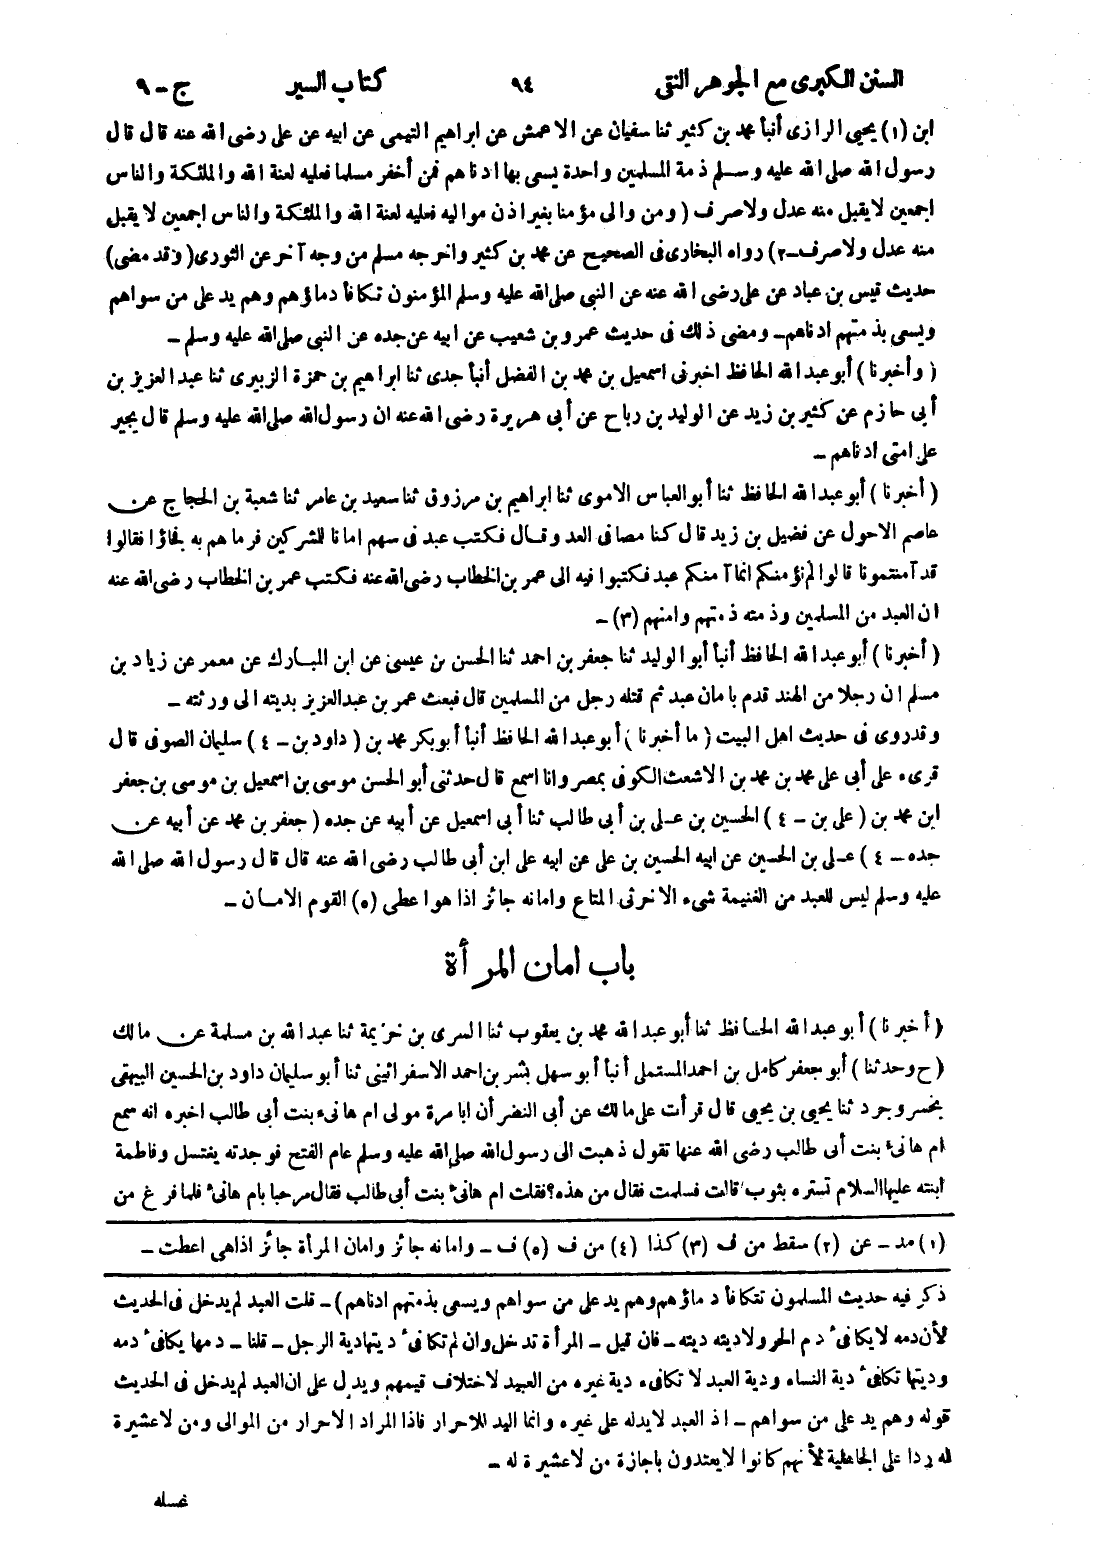 السنن الكبرى مع الجوهر النقى ٩٤ كتاب السير ج - ٩
ابن (١) يحيى الرازى أنبأ محمد بن كثير ثنا سفيان عن الاعمش عن ابراهيم التيمى عن ابيه عن على رضى الله عنه قال قال
رسول الله صلى الله عليه وسلم ذمة المسلمين واحدة يسعى بها ادناهم فمن أخفر مسلما فعليه لعنة الله والملئكة والناس
اجمعين لايقبل منه عدل ولاصرف ( ومن والى مؤمنا بغير اذن مواليه فعليه لعنة الله والملئكة والناس اجمعين لايقبل
منه عدل ولاصرف -٢) رواه البخارى فى الصحيح عن محمد بن كثير واخرجه مسلم من وجه آخر عن الثورى ( وقد مضى)
حديث قيس بن عباد عن على رضى الله عنه عن النبى صلى الله عليه وسلم المؤمنون تكافأ دماؤهم وهم يد على من سواهم
ويسعى بذمتهم ادناهم - ومضى ذلك فى حديث عمرو بن شعيب عن ابيه عن جده عن النبى صلى الله عليه وسلم -
( وأخبرنا ) أبو عبد الله الحافظ اخبرنى اسمعيل بن محمد بن الفضل أنبأ جدى ثنا ابراهيم بن حمزة الزبيرى ثنا عبد العزيز بن
أبى حازم عن كثير بن زيد عن الوليد بن رباح عن أبى هريرة رضى الله عنه ان رسول الله صلى الله عليه وسلم قال يجير
على امتى ادناهم -
( أخبرنا ) أبو عبد الله الحافظ ثنا أبو العباس الاموى ثنا ابراهيم بن مرزوق ثنا سعيد بن عامر ثنا شعبة بن الحجاج عن
عاصم الاحول عن فضيل بن زيد قال كنا مصافى العدو قال فكتب عبد فى سهم امانا للمشركين فرماهم به فجاؤا فقالوا
قد آمنتمونا قالوا لم نؤمنكم انما آمنكم عبد فكتبوا فيه الى عمر بن الخطاب رضى الله عنه فكتب عمر بن الخطاب رضى الله عنه
ان العبد من المسلمين وذمته ذمتهم وامنهم (٣) -
( أخبرنا ) أبو عبد الله الحافظ أنبأ أبو الوليد ثنا جعفر بن احمد ثنا الحسن بن عيسى عن ابن المبارك عن معمر عن زياد بن
مسلم ان رجلا من الهند قدم بامان عبد ثم قتله رجل من المسلمين قال فبعث عمر بن عبد العزيز بديته الى ورثته -
وقد روى فى حديث اهل البيت ( ما أخبرنا ) أبو عبد الله الحافظ أنبأ أبو بكر محمد بن ( داود بن - ٤ ) سليمان الصوفى قال
قرىء على أبى على محمد بن محمد بن الاشعث الكوفى بمصر وانا اسمع قال حدثنى أبو الحسن موسى بن اسمعيل بن موسى بن جعفر
ابن محمد بن ( على بن - ٤ ) الحسين بن على بن أبى طالب ثنا أبى اسمعيل عن أبيه عن جده ( جعفر بن محمد عن أبيه عن
جده - ٤ ) على بن الحسين عن ابيه الحسين بن على عن ابيه على ابن أبى طالب رضى الله عنه قال قال رسول الله صلى الله
عليه وسلم ليس للعبد من الغنيمة شىء الا خرثى المتاع وامانه جائز اذا هو اعطى (٥) القوم الامان -
باب امان المرأة
( أخبرنا ) أبو عبد الله الحافظ ثنا أبو عبد الله محمد بن يعقوب ثنا السرى بن خزيمة ثنا عبد الله بن مسلمة عن مالك
( ح وحدثنا ) أبو جعفر كامل بن احمد المستملى أنبأ أبو سهل بشر بن احمد الاسفرائينى ثنا أبو سليمان داود بن الحسين البيهقى
بخسروجرد ثنا يحيى بن يحيى قال قرأت على مالك عن أبى النضر أن ابا مرة مولى ام هانىء بنت أبى طالب اخبره انه سمع
ام هانىء بنت أبى طالب رضى الله عنها تقول ذهبت الى رسول الله صلى الله عليه وسلم عام الفتح فوجدته يغتسل وفاطمة
ابنته عليها السلام تستره بثوب قالت فسلمت فقال من هذه؟ فقلت ام هانىء بنت أبى طالب فقال مرحبا بام هانىء فلما فرغ من
(١) مد - عن (٢) سقط من ف (٣) كذا (٤) من ف (٥) ف - وامانه جائز وامان المرأة جائز اذا هى اعطت -
ذكر فيه حديث المسلمون تتكافأ دماؤهم وهم يد على من سواهم ويسعى بذمتهم ادناهم ) - قلت العبد لم يدخل فى الحديث
لأن دمه لا يكافىء دم الحر ولا ديته ديته - فان قيل - المرأة تدخل وان لم تكافىء ديتها دية الرجل - قلنا - دمها يكافىء دمه
وديتها تكافىء دية النساء ودية العبد لا تكافىء دية غيره من العبيد لاختلاف قيمهم ويدل على ان العبد لم يدخل فى الحديث
قوله وهم يد على من سواهم - اذ العبد لا يد له على غيره وانما اليد للاحرار فاذا المراد الاحرار من الموالى ومن لا عشيرة
له ردا على الجاهلية لأنهم كانوا لا يعتدون باجازة من لا عشيرة له -
غسله